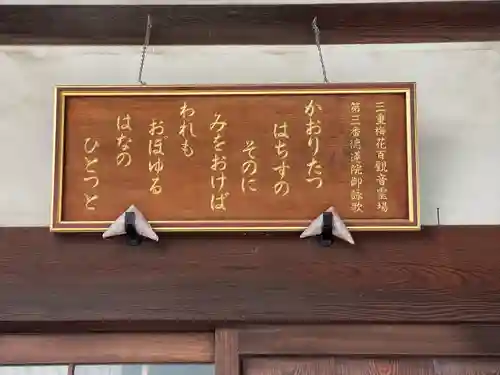 三重梅花百観音霊場
第三番徳蓮院御詠歌
かおりたつ
はちすの
そのに
みをおけば
われも
おぼゆる
はなの
ひとつと